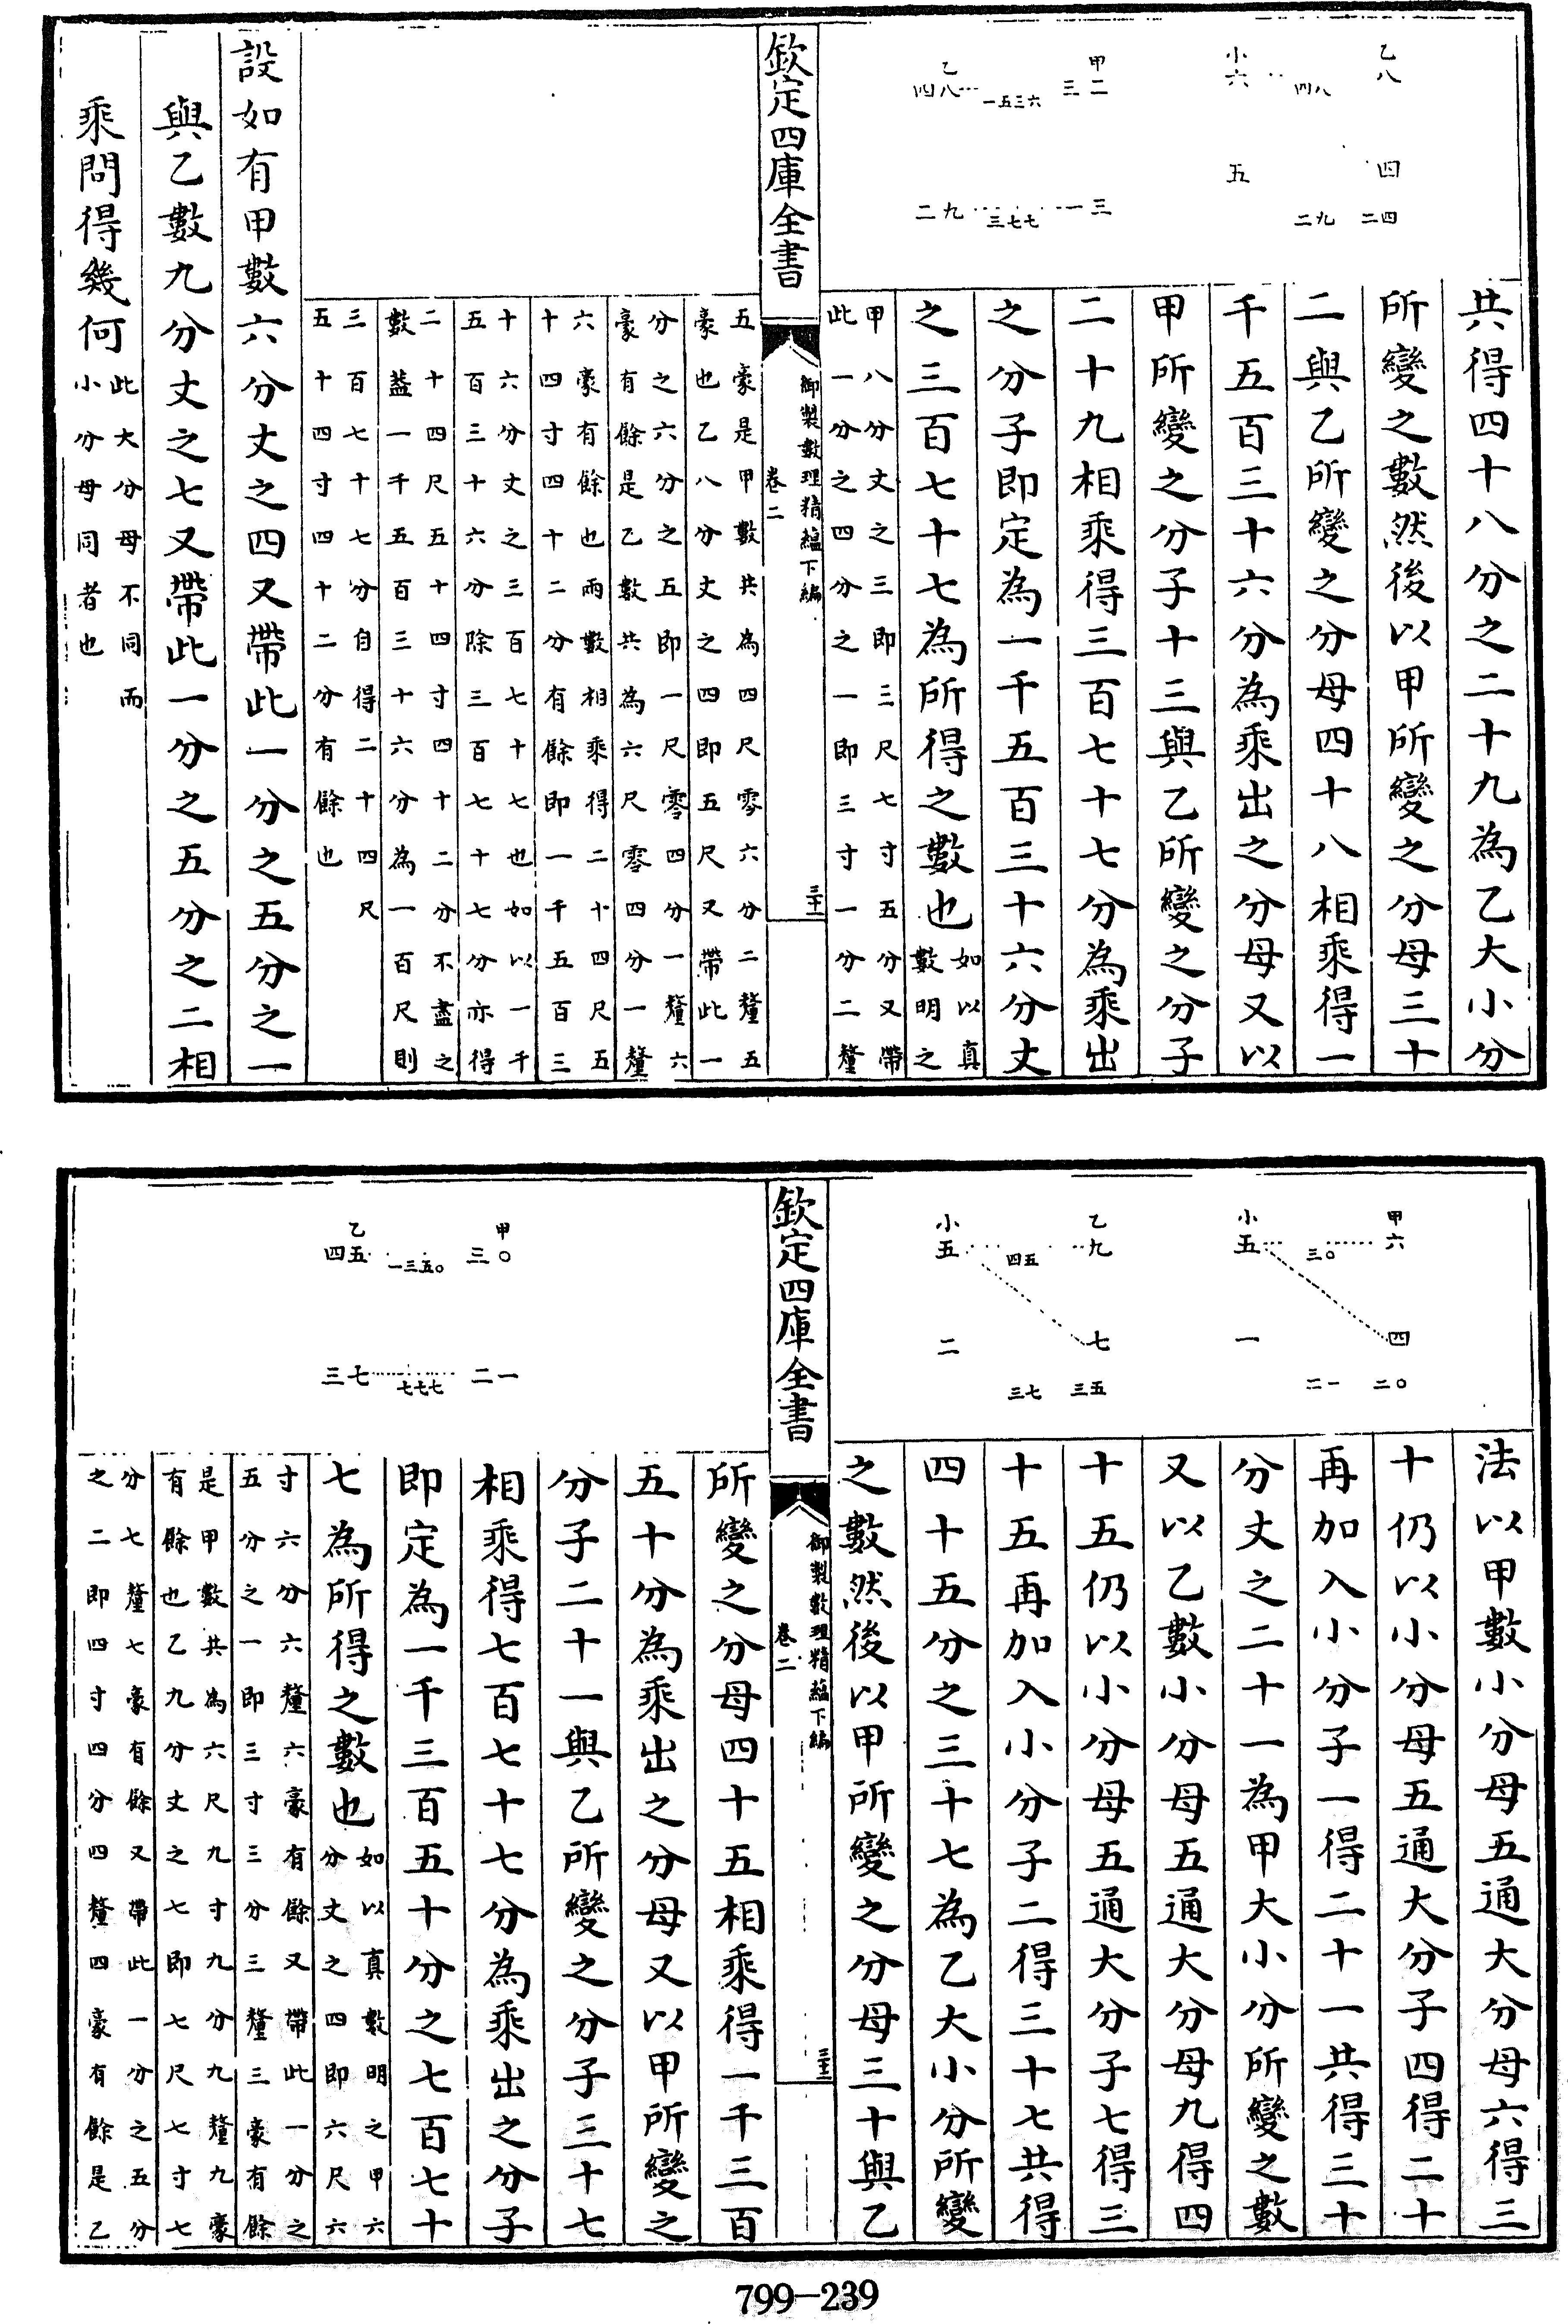 乙八 四八 小六
四 五
二四 二九
甲三二 一五三六 乙四八
一三 三七七 二九
共得四十八分之二十九為乙大小分
所變之數然後以甲所變之分母三十
二與乙所變之分母四十八相乘得一
千五百三十六分為乘出之分母又以
甲所變之分子十三與乙所變之分子
二十九相乘得三百七十七分為乘出
之分子即定為一千五百三十六分丈
之三百七十七為所得之數也如以真
數明之
甲八分丈之三即三尺七寸五分又帶
此一分之四分之一即三寸一分二釐
欽定四庫全書
御製數理精蘊下編
卷二
五豪是甲數共為四尺零六分二釐五
豪也乙八分丈之四即五尺又帶此一
分之六分之五即一尺零四分一釐六
豪有餘是乙數共為六尺零四分一釐
六豪有餘也兩數相乘得二十四尺五
十四寸四十二分有餘即一千五百三
十六分丈之三百七十七也如以一千
五百三十六分除三百七十七分亦得
二十四尺五十四寸四十二分不盡之
數蓋一千五百三十六分為一百尺則
三百七十七分自得二十四尺
五十四寸四十二分有餘也
設如有甲數六分丈之四又帶此一分之五分之一
與乙數九分丈之七又帶此一分之五分之二相
乘問得幾何此大分母不同而
小分母同者也
甲六 三〇 小五
四 一
二〇 二一
乙九 四五 小五
七 二
三五 三七
法以甲數小分母五通大分母六得三
十仍以小分母五通大分子四得二十
再加入小分子一得二十一共得三十
分丈之二十一為甲大小分所變之數
又以乙數小分母五通大分母九得四
十五仍以小分母五通大分子七得三
十五再加入小分子二得三十七共得
四十五分之三十七為乙大小分所變
之數然後以甲所變之分母三十與乙
欽定四庫全書
御製數理精蘊下編
卷二
甲三〇 一三五〇 乙四五
二一 七七七 三七
所變之分母四十五相乘得一千三百
五十分為乘出之分母又以甲所變之
分子二十一與乙所變之分子三十七
相乘得七百七十七分為乘出之分子
即定為一千三百五十分之七百七十
七為所得之數也如以真數明之甲六
分丈之四即六尺六
寸六分六釐六豪有餘又帶此一分之
五分之一即三寸三分三釐三豪有餘
是甲數共為六尺九寸九分九釐九豪
有餘也乙九分丈之七即七尺七寸七
分七釐七豪有餘又帶此一分之五分
之二即四寸四分四釐四豪有餘是乙
799-239